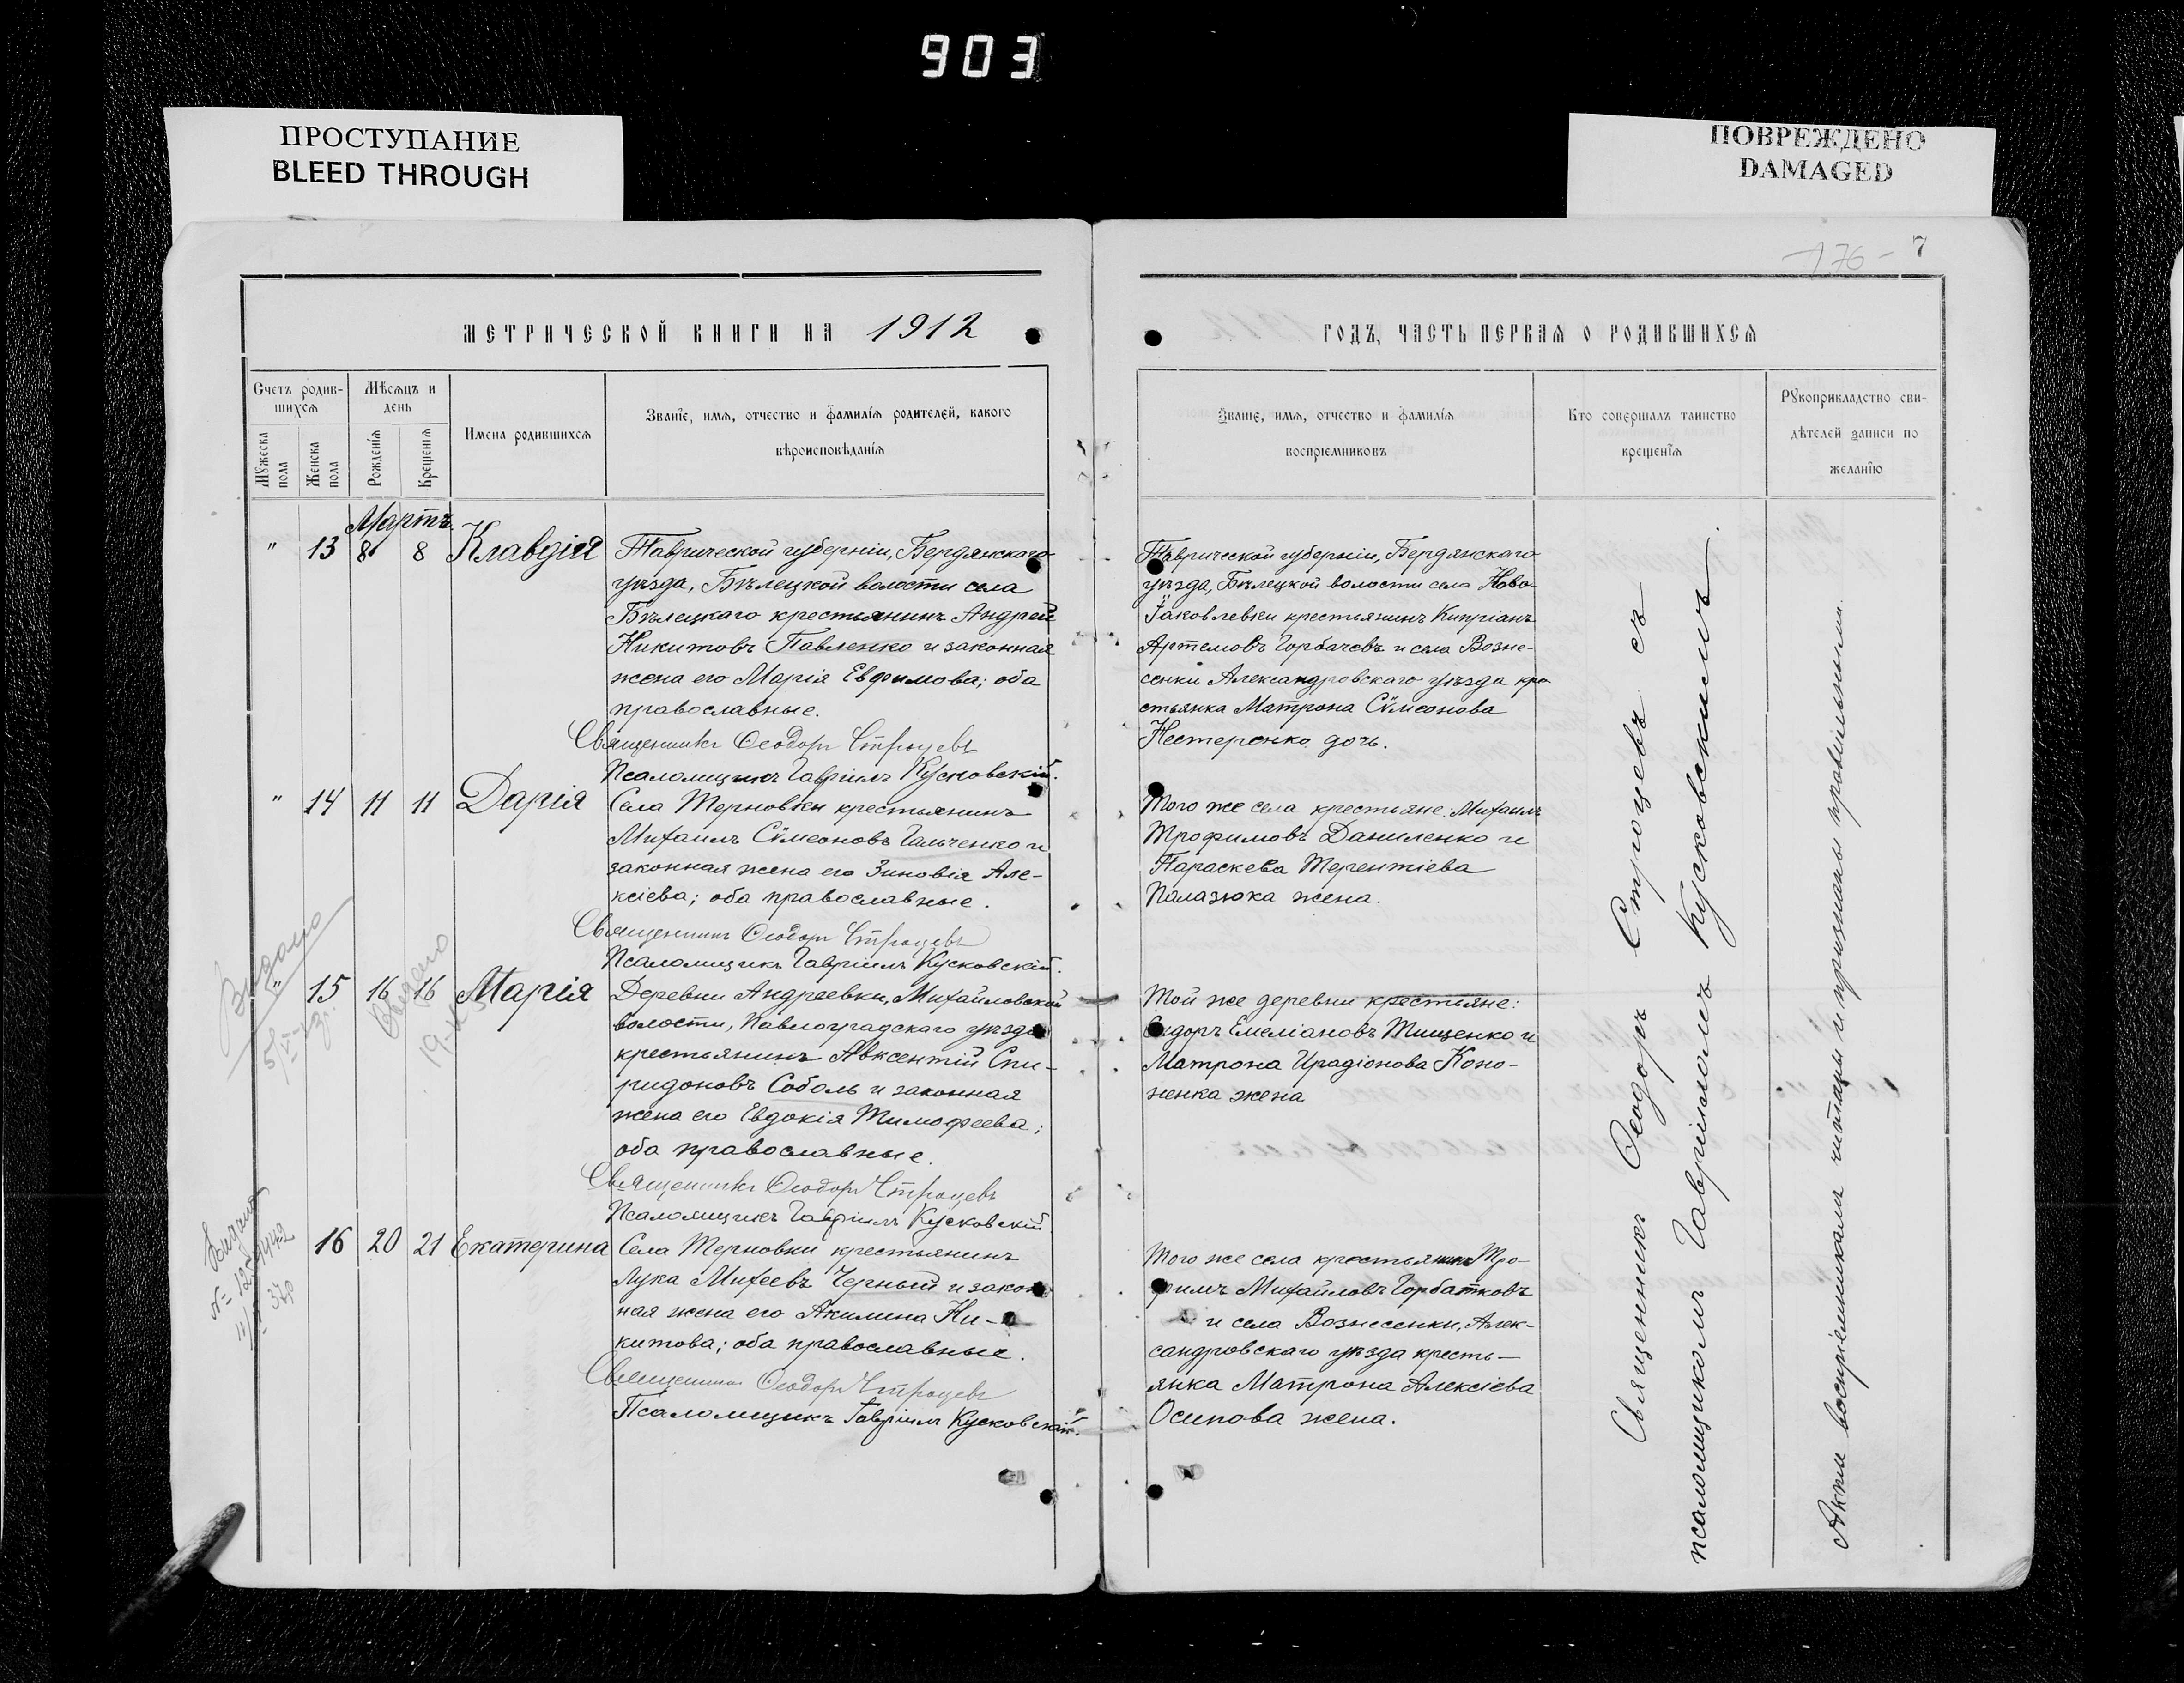 903
ПРОСТУПАНИЕ
BLEED THROUGH
ПОВРЕЖДЕНО
DAMAGED
176 - 7
МЕТРИЧЕСКОЙ КНИГИ НА 1912
Счетъ родив-
шихся
Мꙋжеска
пола
Женска
пола
Мѣсяцъ и
день
Рожденія
Крещенія
Имена родившихся
Званіе, имя, отчество и фамилія родителей, какого
вѣроисповѣданія
Мартъ.
" 13 8 8 Клавдія
Таврической губерніи, Бердянскаго
уѣзда, Бѣлецкой волости села
Бѣлецкаго крестьянинъ Андрей
Никитовъ Павленко и законная
жена его Марія Евфимова; оба
православные.
Священникъ Ѳеодоръ Строцевъ
Псаломщикъ Гавріилъ Кусковскій.
" 14 11 11 Дарія
Села Терновки крестьянинъ
Михаилъ Сѵмеоновъ Гальченко и
законная жена его Зиновія Але-
ксіева; оба православные.
Священникъ Ѳеодоръ Строцевъ
Псаломщикъ Гавріилъ Кусковскій.
Видано
" 15 16 16 Марія
Деревни Андреевки, Михайловской
волости, Павлоградскаго уѣзда
крестьянинъ Авксентій Спи-
ридоновъ Соболь и законная
жена его Евдокія Тимофеева;
оба православные.
Священникъ Ѳеодоръ Строцевъ
Псаломщикъ Гавріилъ Кусковскій
16 20 21 Екатерина
Села Терновки крестьянинъ
Лука Михеевъ Черный и закон
ная жена его Акилина Ни-
китова; оба православные.
Священникъ Ѳеодоръ Строцевъ
Псаломщикъ Гавріилъ Кусковскій.
ГОДЪ, ЧАСТЬ ПЕРВАЯ О РОДИВШИХСЯ
Званіе, имя, отчество и фамилія
воспріемниковъ
Кто совершалъ таинство
крещенія
Рꙋкоприкладство сви-
дѣтелей записи по
желанію
Таврической губерніи, Бердянскаго
уѣзда, Бѣлецкой волости села Ново-
Іаковлевки крестьянинъ Кипріанъ
Артемовъ Горбачевъ и села Возне-
сенки Александровскаго уѣзда кре
стьянка Матрона Сѵмеонова
Нестеренко дочь.
Того же села крестьяне: Михаилъ
Трофимовъ Даниленко и
Параскева Терентіева
Палазюка жена.
Той же деревни крестьяне:
Сидоръ Емеліановъ Тищенко и
Матрона Ирадіонова Коно-
ненка жена
Того же села крестьянинъ Тро-
фимъ Михайловъ Горбатковъ
и села Вознесенки, Алек-
сандровскаго уѣзда кресть-
янка Матрона Алексіева
Осипова жена.
Священникъ Ѳеодоръ Строцевъ съ
псаломщикомъ Гавріиломъ Кусковскимъ.
Акты воспріемниками читаны и признаны правильными.